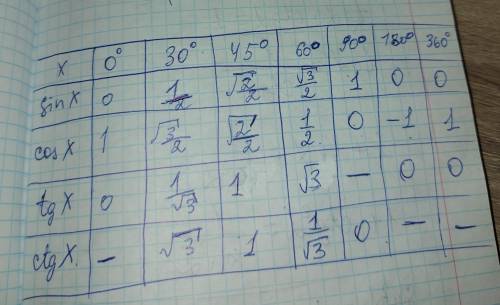 x 0° 30° 45° 60° 90° 180° 360°
sin x 0 1/2 √2/2 √3/2 1 0 0
cos x 1 √3/2 √2/2 1/2 0 -1 1
tg x 0 1/√3 1 √3 - 0 0
ctg x. - √3 1 1/√3 0 - -